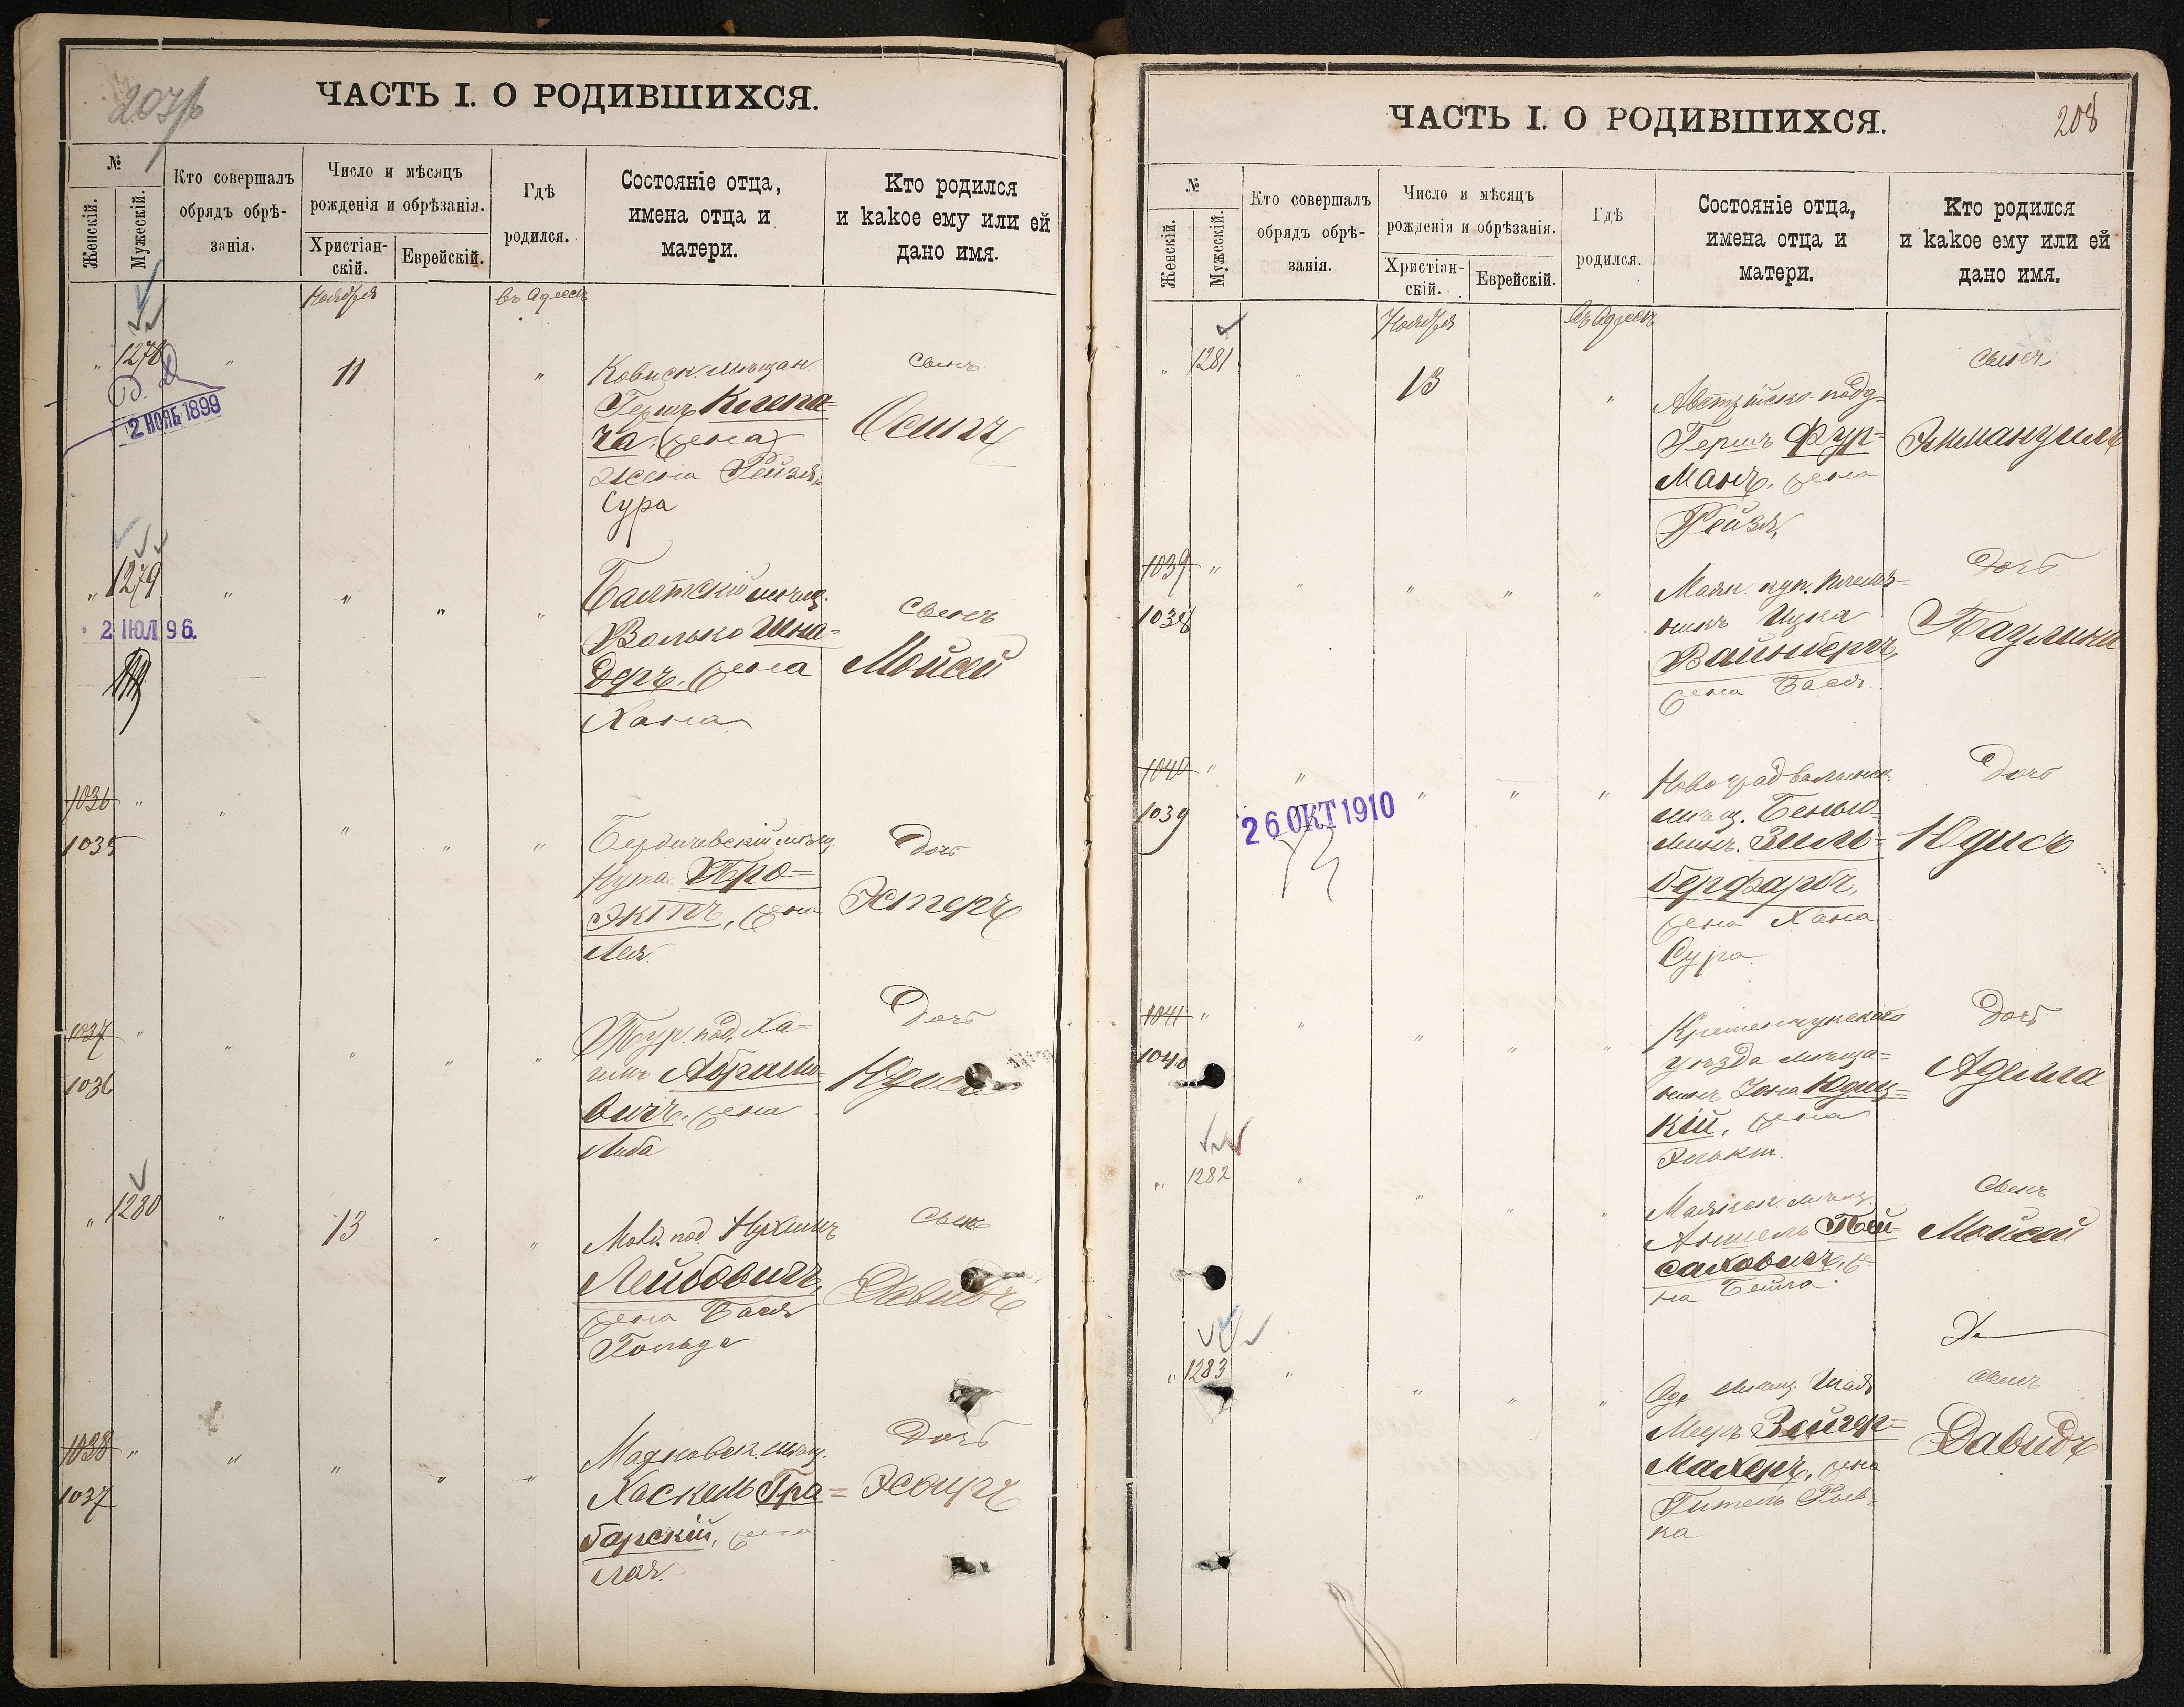 207/б
ЧАСТЬ I. О РОДИВШИХСЯ.
№
Женскій.
Мужескій.
Кто совершалъ
обрядъ обрѣ-
занія.
Число и мѣсяцъ
рожденія и обрѣзанія.
Христіан-
скій.
Еврейскій.
Гдѣ
родился.
Состояніе отца,
имена отца и
матери.
Кто родился
и какое ему или ей
дано имя.
Ноября
въ Одессѣ
" 1278 " 11 "
2 НОЯБ 1899
Ковнск. мѣщан.
Гершъ
ча (жена)
жена Рейзя
Сура
сынъ
Осипъ
" 1279 " " " "
2 ІЮЛ 96.
Балтскій мѣщ.
Волько Шна=
деръ, жена
Хана
сынъ
Мойсей
1036 " " " " "
1035
Бердичевскій мѣщ
Нута Про=
эктъ, жена
Лея.
Дочь
Эстеръ
1037 " " " " "
1036
Тур. под. Ха=
имъ Абрамо=
вичъ, жена
Либа
Дочь
Юдись
" 1280 " 13 " "
Молд. под. Нухимъ
Лейбовичъ,
жена Бася
Гольда
Сынъ
Давидъ
1038 " " " " "
1037
мѣщ.
Хаскель Гра=
барскій, жена
Лея.
Дочь
Эсѳирь
ЧАСТЬ I. О РОДИВШИХСЯ.
208
№
Женскій.
Мужескій.
Кто совершалъ
обрядъ обрѣ-
занія.
Число и мѣсяцъ
рожденія и обрѣзанія.
Христіан-
скій.
Еврейскій.
Гдѣ
родился.
Состояніе отца,
имена отца и
матери.
Кто родился
и какое ему или ей
дано имя.
Ноября
Въ Одессѣ
" 1281 " 13 "
Австрійско подд=
Гершъ Фур=
манъ, жена
Рейзя,
сынъ
Эммануилъ
1039 " " " " "
1038
Маяк. куп. племя=
никъ Ицка
Вайнбергъ,
жена Бася.
Дочь
Паулина
1040 " " " " "
1039
26 ОКТ 1910
Новоградволынск.
мѣщ. Беньи=
минъ. Зиль=
берфарбъ,
жена Хана
Сура.
Дочь
Юдись
1041 " " " " "
1040
Кременчугского
уѣзда мѣща=
нинъ Іона Юдиц=
кій, жена
Дочь
Аделла
" 1282 " " " "
Маякск. мѣщ.
Аншель Пей=
саховичъ, же=
на Бейла.
Сынъ
Мойсей
" 1283 " " " "
Од. мѣщ. Шая
Мееръ Зейгер=
махеръ, жена
Гитель Рив=
ка
сынъ
Давидъ